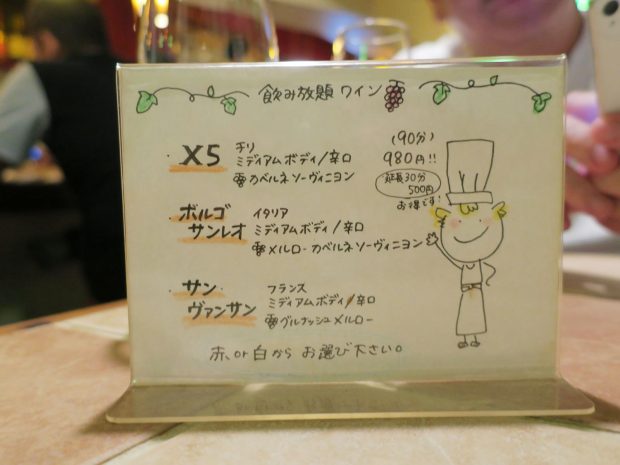 飲み放題ワイン
(90分)
980円!!
延長30分
500円
お得です!
・X5
チリ
ミディアムボディ/辛口
カベルネソーヴィニヨン
・ボルゴ
サンレオ
イタリア
ミディアムボディ/辛口
メルローカベルネソーヴィニヨン
・サン
ヴァンサン
フランス
ミディアムボディ/辛口
グルナッシュメルロー
赤、or白からお選び下さい。